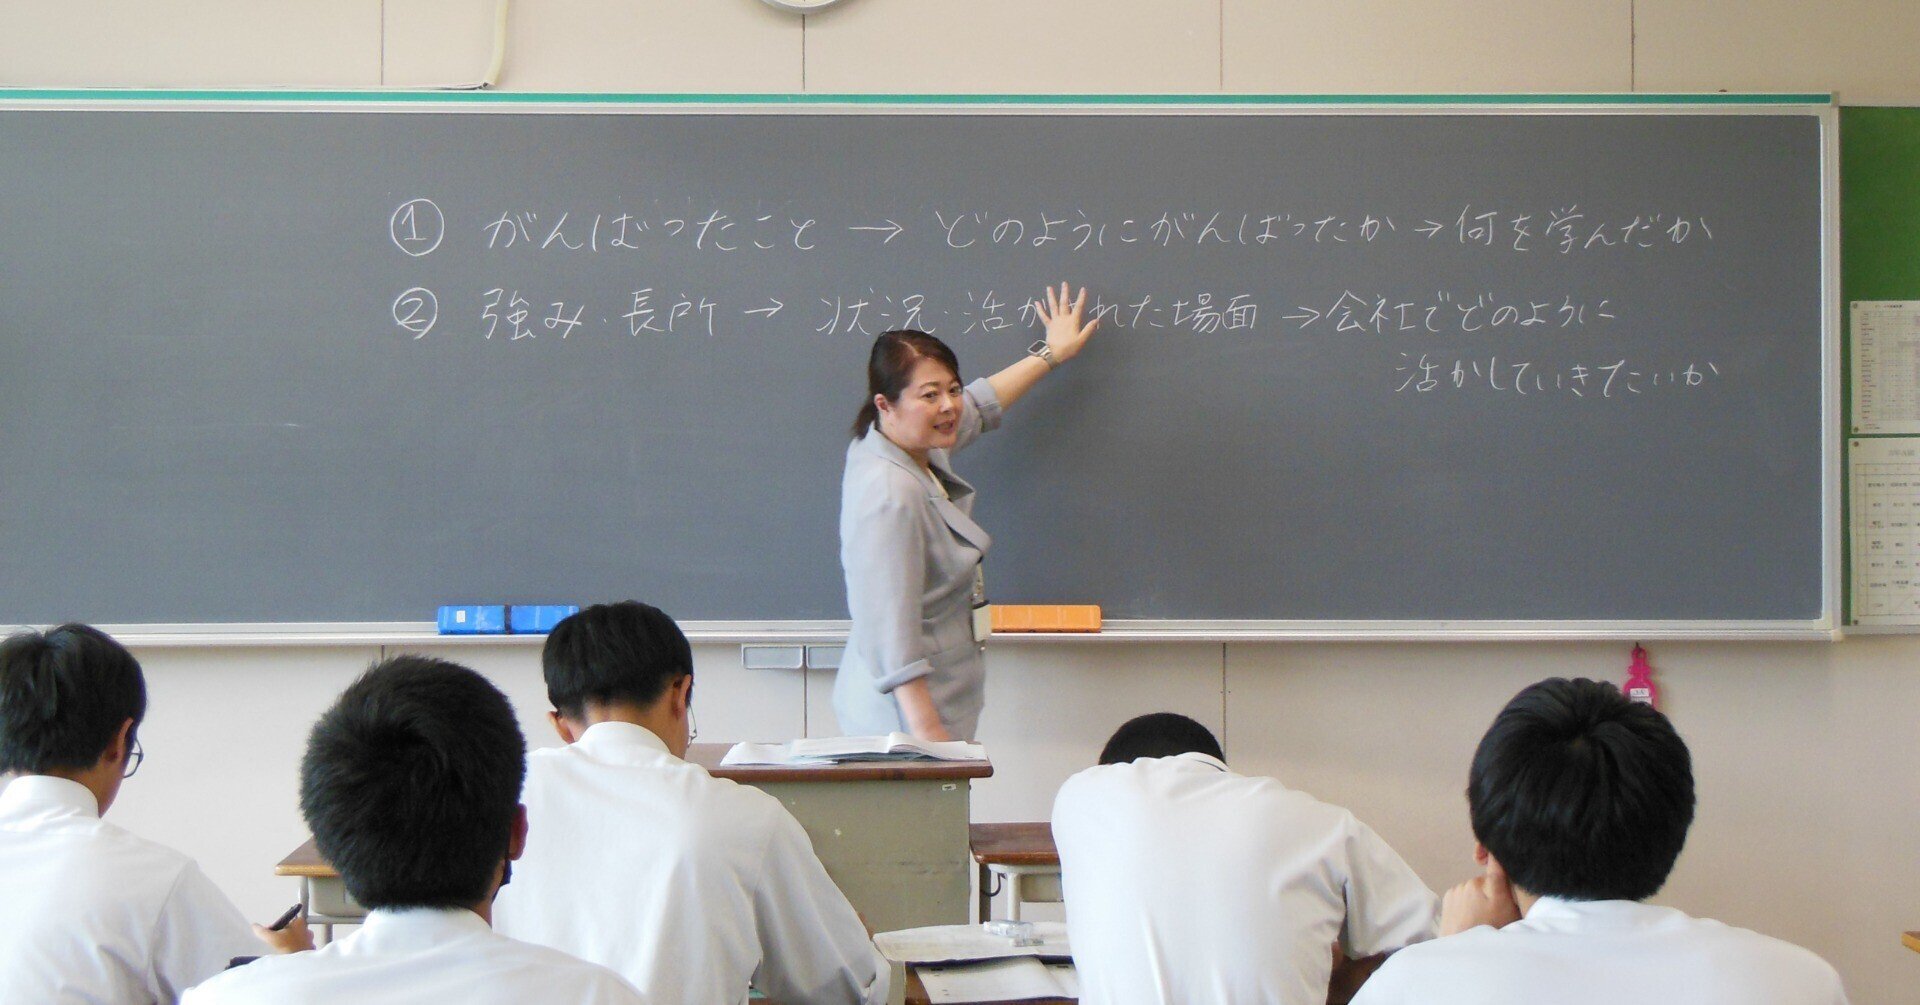 ① がんばったこと → どのようにがんばったか → 何を学んだか
② 強み・長所 → 状況・活かれた場面 → 会社でどのように
活かしていきたいか